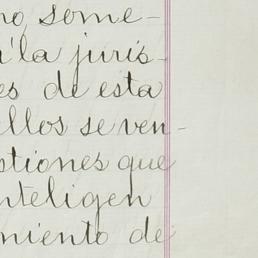 no some-
á la juris-
es de esta
ellos se ven-
stiones que
inteligen
miento de